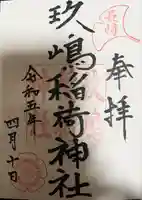 奉拝
玖嶋稲荷神社
令和五年
四月十日